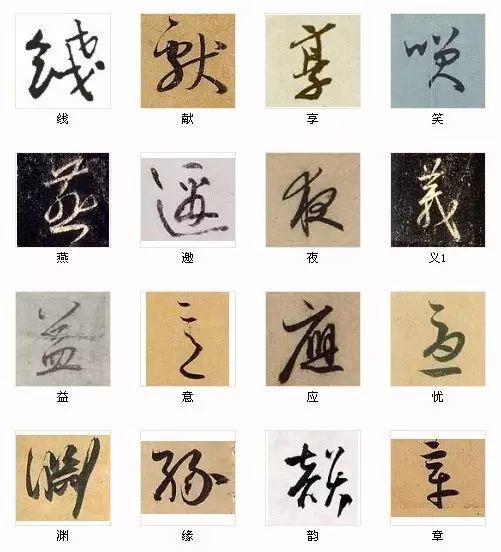 线 献 享 笑
燕 邀 夜 义1
益 意 应 忧
渊 缘 韵 章